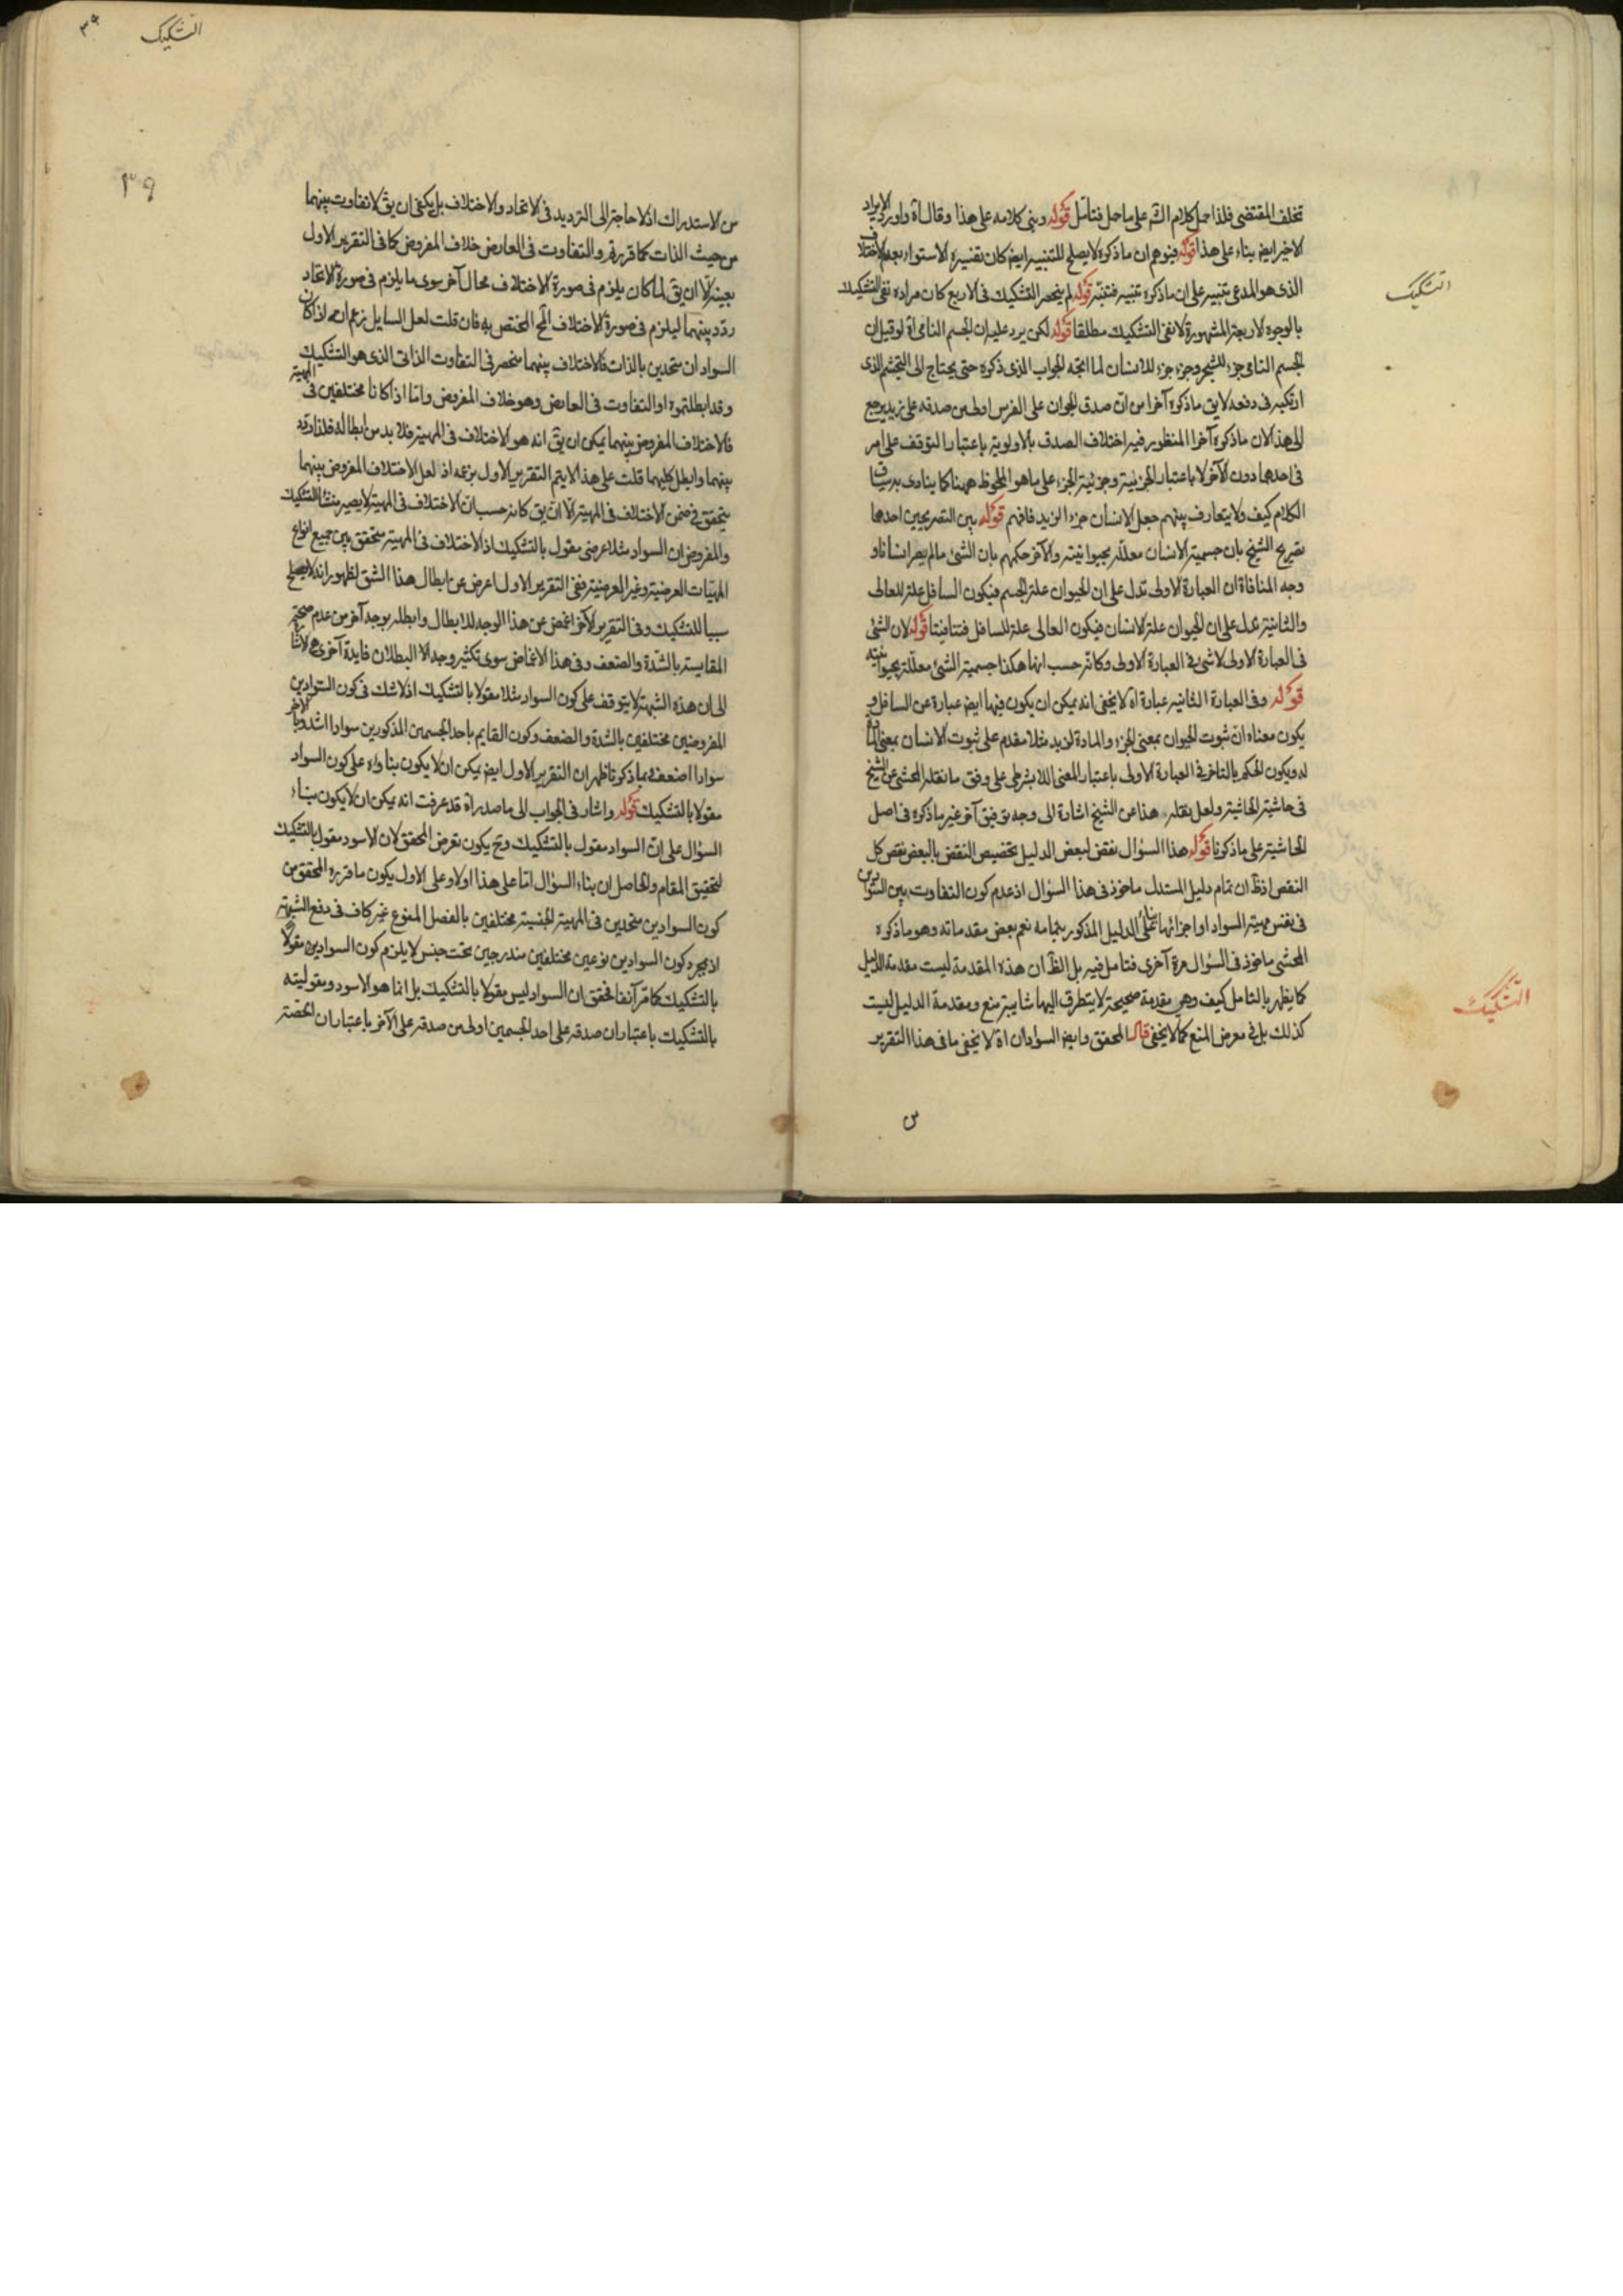 تخلف المقتضى فلذا حمل كلام الش على ما حمل فتأمل قوله وبنى كلامه على هذا وقال اه واورد الايراد
الاخير ايض بناء على هذا قوله فيتوهم ان ما ذكره لا يصلح للتنبيه ايض كان تفسيره الاستواء بعدم الاختلاف
الذى هو المدعى تنبيه على ان ما ذكره تنبيه فتنبه قوله لم ينحصر التشكيك فى الاربع كان مراده نفى التشكيك
بالوجوه الاربعة المشهورة لا نفى التشكيك مطلقا قوله لكن يرد عليه ان الجسم النامى اه لو قيل ان
الجسم النامى جزء للشجر وجزء جزء للانسان لما اتجه الجواب الذى ذكره حتى يحتاج الى التجشم الذى
ارتكبه فى دفعه لا يق ما ذكره آخرا من ان صدق الحيوان على الفرس اولى من صدقه على زيد يرجع
الى هذا لان ما ذكره آخرا المنظور فيه اختلاف الصدق بالاولوية باعتبار التوقف على امر
فى احدهما دون الآخر لا باعتبار الجزئية وجزئية الجزء على ما هو الملحوظ ههنا كما ينادى به سياق
الكلام كيف ولا يتعارف بينهم جعل الانسان جزء الزيد فافهم قوله بين التصريحين احدها
تصريح الشيخ بان جسمية الانسان معللة بحيوانيته والآخر حكمهم بان الشئ ما لم يصر انسانا و
وجه المنافاة ان العبارة الاولى تدل على ان الحيوان علة الجسم فيكون السافل علة للعالى
والثانية تدل على ان الحيوان علة الانسان فيكون العالى علة للسافل فتنافيتا قوله لان الشئ
فى العبارة الاولى لا شئ فى العبارة الاولى وكانه حسب انها هكذا جسمية الشئ معللة بحيوانيته
قوله وفى العبارة الثانيه عبارة اه لا يخفى انه يمكن ان يكون فيها ايض عبارة عن السافل و
يكون معناه ان ثبوت الحيوان بمعنى الجزء والمادة لزيد مثلا مقدم على ثبوت الانسان بمعنى
له ويكون الحكم بالتاخر فى العبارة الاولى باعتبار المعنى اللا بشرطى على وفق ما نقله المحشى عن الشيخ
فى حاشية الحاشية ولعل نقله هذا عن الشيخ اشارة الى وجه توفيق آخر غير ما ذكره فى اصل
الحاشية على ما ذكرنا قوله هذا السؤال نقض لبعض الدليل تخصيص النقض بالبعض نقص كل
النقص اذظ ان تمام دليل المستدل ماخوذ فى هذا السؤال اذ عدم كون التفاوت بين السوادين
فى نفس مهية السواد او اجزائها الدليل المذكور بتمامه نعم بعض مقدماته وهو ما ذكره
المحشى ماخوذ فى السؤال مرة آخرى فتامل فيه بل الظ ان هذه المقدمة ليست مقدمة الدليل
كما يظهر بالتامل كيف وهى مقدمة صحيحة لا يتطرق اليها شايبة منع ومقدمة الدليل ليست
كذلك بل فى معرض المنع كما لا يخفى قال المحقق وايض السوادان اه لا يخفى ما فى هذا التقرير
س
التشكيك
التشكيك
التشكيك
٣٩
٣٩
من الاستدراك اذ لا حاجة الى الترديد فى الاتحاد والاختلاف بل يكفى ان يق لا تفاوت بينهما
من حيث الذات كما قرره والتفاوت فى العارض خلاف المفروض كما فى التقرير الاول
بعينه الا ان يق لما كان يلزم فى صورة الاختلاف محال آخر سوى ما يلزم فى صورة الاتحاد
ردد بينهما ليلزم فى صورة الاختلاف المح المختص به فان قلت لعل السايل زعم انه اذا كان
السوادان متحدين بالذات فالاختلاف بينهما منحصر فى التفاوت الذاتى الذى هو التشكيك
وقد ابطلتموه او التفاوت فى العارض وهو خلاف المفروض واما اذا كانا مختلفين فى المهية
فالاختلاف المفروض بينهما يمكن ان يق انه هو الاختلاف فى المهية فلا بد من ابطاله فلذا
بينهما وابطل كليهما قلت على هذا لا يتم التقرير الاول بزعمه اذ لعل الاختلاف المفروض بينهما
يتحقق فى ضمن الاختلاف فى المهية الا ان يق كانه حسب ان الاختلاف فى المهية لا يصير منشا التشكيك
والمفروض ان السواد مثلا عرضى مقول بالتشكيك اذ الاختلاف فى المهية متحقق بين جميع انواع
المهيات العرضية وغير العرضية ففى التقرير الاول اعرض عن ابطال هذا الشق لظهور انه لا يصلح
سببا للتشكيك وفى التقرير الآخر اغمض عن هذا الوجه للابطال وابطله بوجه آخر من عدم صحة
المقايسة بالشدة والضعف وفى هذا الاغماض سوى تكثير وجه الابطلان فايدة آخرى هى الاشارة
الى ان هذه الشبهة لا يتوقف على كون السواد مثلا مقولا بالتشكيك اذ لا شك فى كون السوادين
المفروضين مختلفين بالشدة والضعف وكون القايم باحد الجسمين المذكورين سوادا اشد وبالآخر
سوادا اضعف فبما ذكرنا ظهر ان التقرير الاول ايض يمكن ان لا يكون بناؤه على كون السواد
مقولا بالتشكيك قوله واشار فى الجواب الى ما صدر اه قد عرفت انه يمكن ان لا يكون بناء
السؤال على ان السواد مقول بالتشكيك وح يكون تعرض المحقق لان الاسود مقول بالتشكيك
لتحقيق المقام والحاصل ان بناء السؤال اما على هذا اولا وعلى الاول يكون ما قرره المحقق من
كون السوادين متحدين فى المهية الجنسية مختلفين بالفصل المنوع غير كاف فى دفع الشبهة
اذ بمجرد كون السوادين نوعين مختلفين مندرجين تحت جنس لا يلزم كون السوادين مقولا
بالتشكيك كما مر آنفا فحقق ان السواد ليس مقولا بالتشكيك بل انما هو الاسود ومقوليته
بالتشكيك باعتبار ان صدقه على احد الجسمين اولى من صدقه على الآخر باعتبار ان الحصة